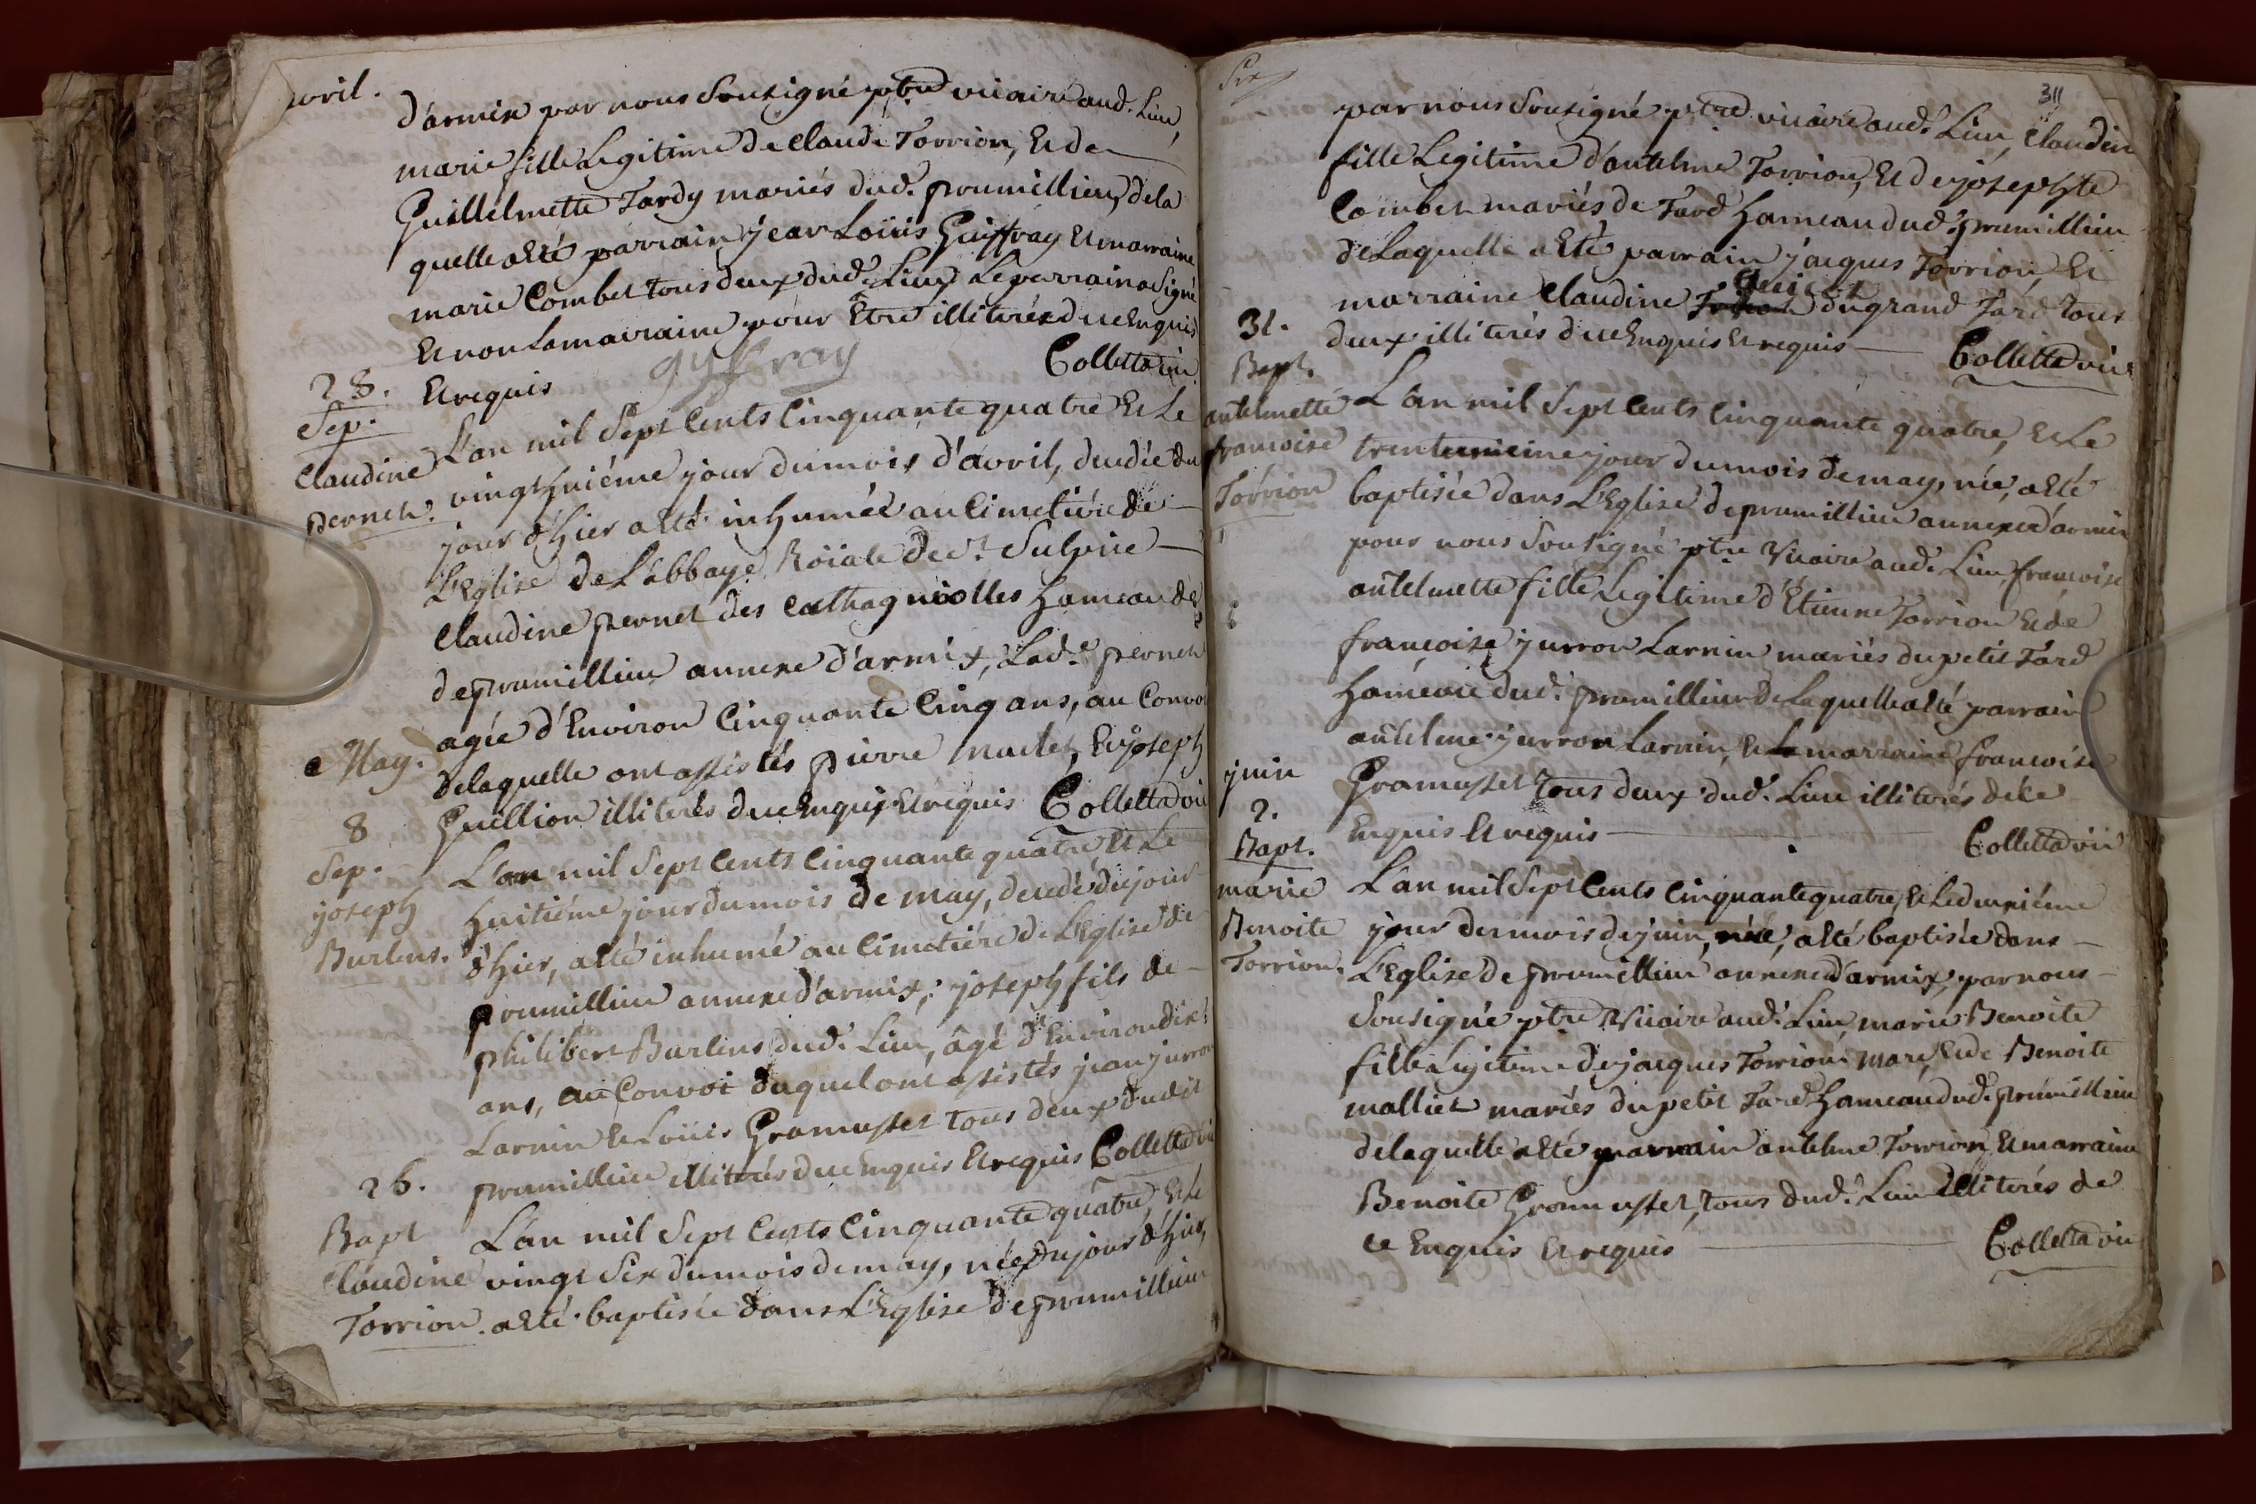 avril.
d'armix par nous Sousigné ptre vicaire aud. Lieu,
marie fille Legitime de Claude Torrion, Et de
Guillelmette Tardy mariés dud. prumillieu, de la
quelle a Eté parrain jean Loüis Guiffray Et marraine
marie Combet tous deux dud. Lieu Le parrain a Signé
Et non La marraine pour Etre illiterée de ce Enquis
Et requis
gyffray
Colletta vic.
28.
Sep.
Claudine
pernet.
L'an mil Sept Cents Cinquante quatre Et Le
vingt huiéme jour du mois d'avril, decedée du
jour d'hier a Eté inhumée au Cimetiére de
L'Eglise de L'abbaye Roïale de St. Sulpice
Claudine pernet des Catthagniolles hameau de
de prumillieu annexe d'armix, Lade. pernet
agée d'Environ Cinquante Cinq ans, au Convoi
de laquelle ont assistés pierre Et joseph
Guillion illiterés de ce Enquis Et requis Colletta vic
May.
8
Sep.
joseph
Burlens.
L'an mil Sept Cents Cinquante quatre Et Le
huitiéme jour du mois de may, decedé du jour
d'hier, a Eté inhumé au Cimetiére de L'Eglise de
prumillieu annexe d'armix, joseph fils de
philibert Burlens dud. Lieu, âgé d'Environ dix
ans, au Convoi duquel ont assistés jean jurron
Larnin Et Loüis Gramusset tous deux dudit
prumillieu illiterés de ce Enquis Et requis Colletta vic
26.
Bapt
Claudine
Torrion.
L'an mil Sept Cents Cinquante quatre, Et Le
vingt Six du mois de may, née du jour d'hier,
a Eté baptisée dans L'Eglise de prumillieu
311
par nous Sousigné ptre vicaire aud. Lieu, Claudin
fille Legitime d'antelme Torrion, Et de josephte
Combet mariés de Tard hameau dud. prumillieu
de Laquelle a Eté parrain jacques Torrion, Et
marraine Claudine du grand Tard tous
deux illiterés de ce Enquis Et requis Colletta vic
31.
Bapt.
antelmette
francoise
Torrion
L'an mil Sept Cents Cinquante quatre, Et Le
trentunieme jour du mois de may, née, a Eté
baptisée dans L'Eglise de prumillieu annexe d'armix
pour nous Sousigné ptre Vicaire aud. Lieu, francoise
antelmette fille Legitime d'Etienne Torrion Et de
francoise jurron Larnin mariés du petit Tard
hameau dud. prumillieu de Laquelle a Eté parrain
antelme jurron Larnin, Et La marraine francoise
Gramusset tous deux dud. Lieu illiterés de ce
Enquis Et requis Colletta vic
juin
2.
Bapt.
marie
Benoite
Torrion.
L'an mil Sept Cents Cinquante quatre, Et Le deuxiéme
jour du mois de juin, née, a Eté baptisée dans
L'Eglise de prumillieu annexe d'armix, par nous
Sousigné ptre Vicaire aud. Lieu, marie Benoite
fille Legitime de jacques Torrion mare, Et de Benoite
malliet mariés du petit Tard hameau dud. prumillieu
de laquelle a Eté parrain antelme Torrion, Et marraine
Benoite Gramusset, tous dud. Lieu illiterés de
ce Enquis Et requis Colletta vic